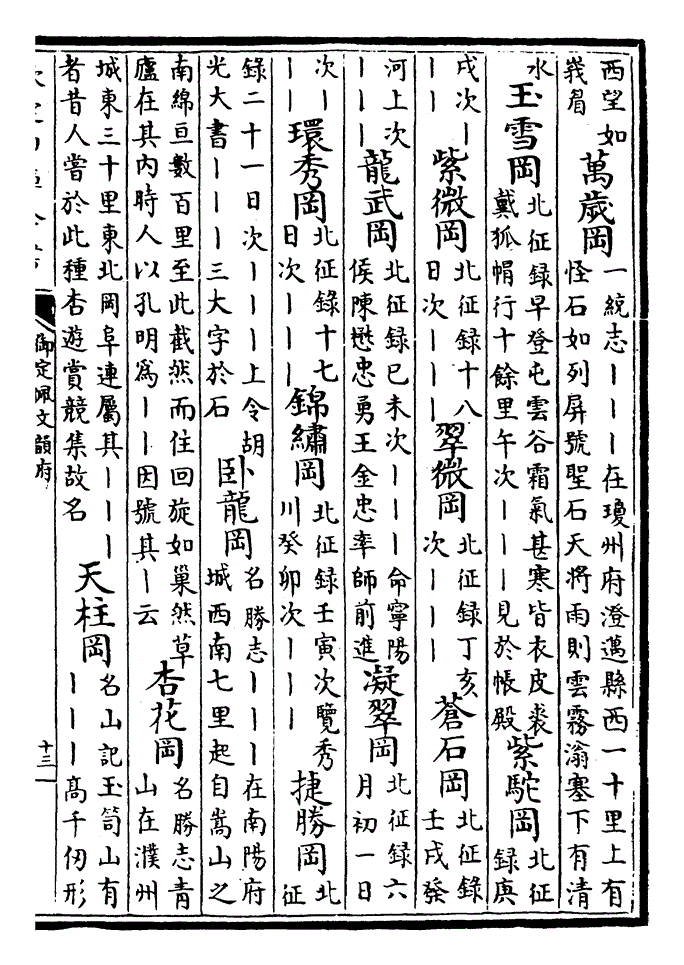 西望如
峩眉
萬歲岡
一統志丨丨丨在瓊州府澄邁縣西一十里上有
怪石如列屏號聖石天將雨則雲霧滃塞下有清
水
玉雪岡
北征録早登屯雲谷霜氣甚寒皆衣皮裘
戴狐帽行十餘里午次丨丨丨見於帳殿
紫駝岡
北征
録庚
戌次丨
丨丨
紫微岡
北征録十八
日次丨丨丨
翠微岡
北征録丁亥
次丨丨丨
蒼石岡
北征録
壬戌發
河上次
丨丨丨
龍武岡
北征録已未次丨丨丨命寧陽
侯陳懋忠勇王金忠率師前進
凝翠岡
北征録六
月初一日
次丨
丨丨
環秀岡
北征録十七
日次丨丨丨
錦繡岡
北征録壬寅次覽秀
川癸卯次丨丨丨
捷勝岡
北
征
録二十一日次丨丨丨上令胡
光大書丨丨丨三大字於石
卧龍岡
名勝志丨丨丨在南陽府
城西南七里起自嵩山之
南綿亘數百里至此截然而住回旋如巢然草
廬在其内時人以孔明爲丨丨因號其丨云
杏花岡
名勝志青
山在濮州
城東三十里東北岡阜連屬其丨丨丨
者昔人嘗於此種杏遊賞競集故名
天柱岡
名山記玉笥山有
丨丨丨高千仞形
御定佩文韻府
十三